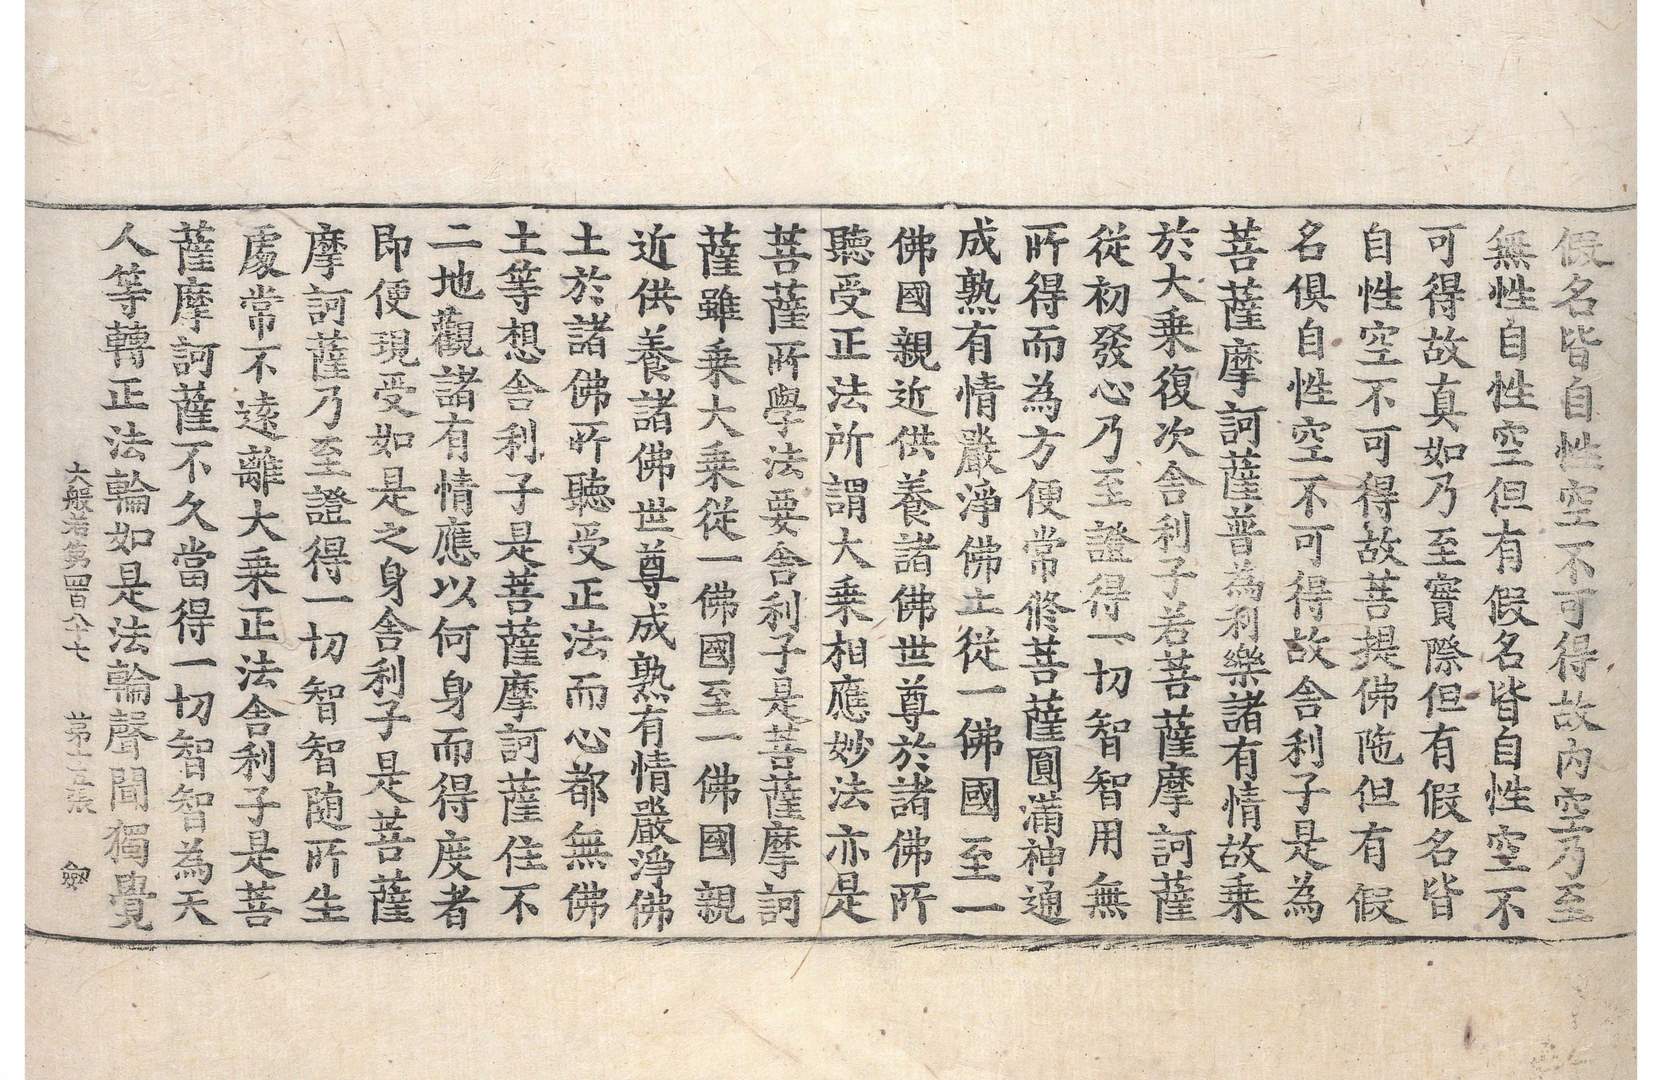 假名皆自性空不可得故內空乃至
無性自性空但有假名皆自性空不
可得故真如乃至實際但有假名皆
自性空不可得故菩提佛陁但有假
名俱自性空不可得故舍利子是為
菩薩摩訶薩普為利樂諸有情故乗
於大乗復次舍利子若菩薩摩訶薩
從初發心乃至證得一切智智用無
所得而為方便常修菩薩圓滿神通
成熟有情嚴淨佛土從一佛國至一
佛國親近供養諸佛世尊於諸佛所
聽受正法所謂大乗相應妙法亦是
菩薩所學法要舍利子是菩薩摩訶
薩雖乗大乗從一佛國至一佛國親
近供養諸佛世尊成熟有情嚴淨佛
土於諸佛所聽受正法而心都無佛
土等想舍利子是菩薩摩訶薩住不
二地觀諸有情應以何身而得度者
即便現受如是之身舍利子是菩薩
摩訶薩乃至證得一切智智随所生
處常不遠離大乗正法舍利子是菩
薩摩訶薩不久當得一切智智為天
人等轉正法輪如是法輪聲聞獨覺
大般若第四百八十七 第十五張 劒